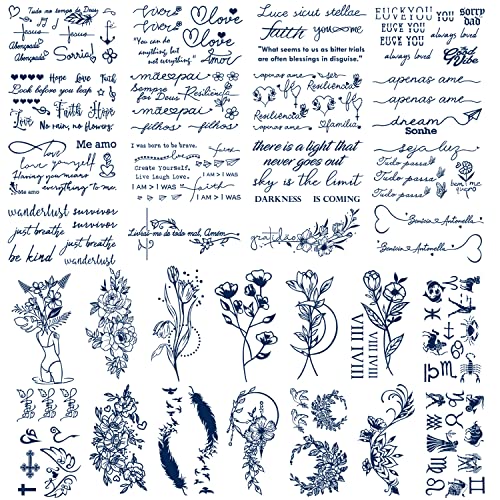 Tudo no tempo de Deus
Jesus
Jesus
Abençoada
Abençoada
Sorria!
Love
"You can do
anything, but
not everything."
love
love
Amor
Luce sicut stellae
faith you me
"What seems to us as bitter trials
are often blessings in disguise."
FUCK YOU
YOU
SORRY
DAD
FUCK YOU
FUCK YOU
always loved
always loved
Good
Vibe
Hope Love Faith
Look before you leap
Love
Faith Hope
No rain, no flowers.
mãe&pai
Sempre
Resiliência
for Deus
mãe&pai
filhos
filhos
apenas ame
Resiliência
apenas ame
Resiliência
família
apenas ame
apenas ame
dream
Sonhe
Me amo
love
love yourself
Having you means
everything to me.
te amo
I was born to be brave.
love
Create Yourself.
Live laugh love.
I AM > I WAS
faith
I AM > I WAS
faith
there is a light that
never goes out
sky is the limit
DARKNESS IS COMING
seja luz
Tudo passa
Tudo passa
Tudo passa
bem me
quer
wanderlust survivor
just breathe survivor
just breathe
be kind wanderlust
Livrai-me de todo mal, Amém.
gratidão
Benicio Antonella
Benicio Antonella
VIII VIII
VIII VIII